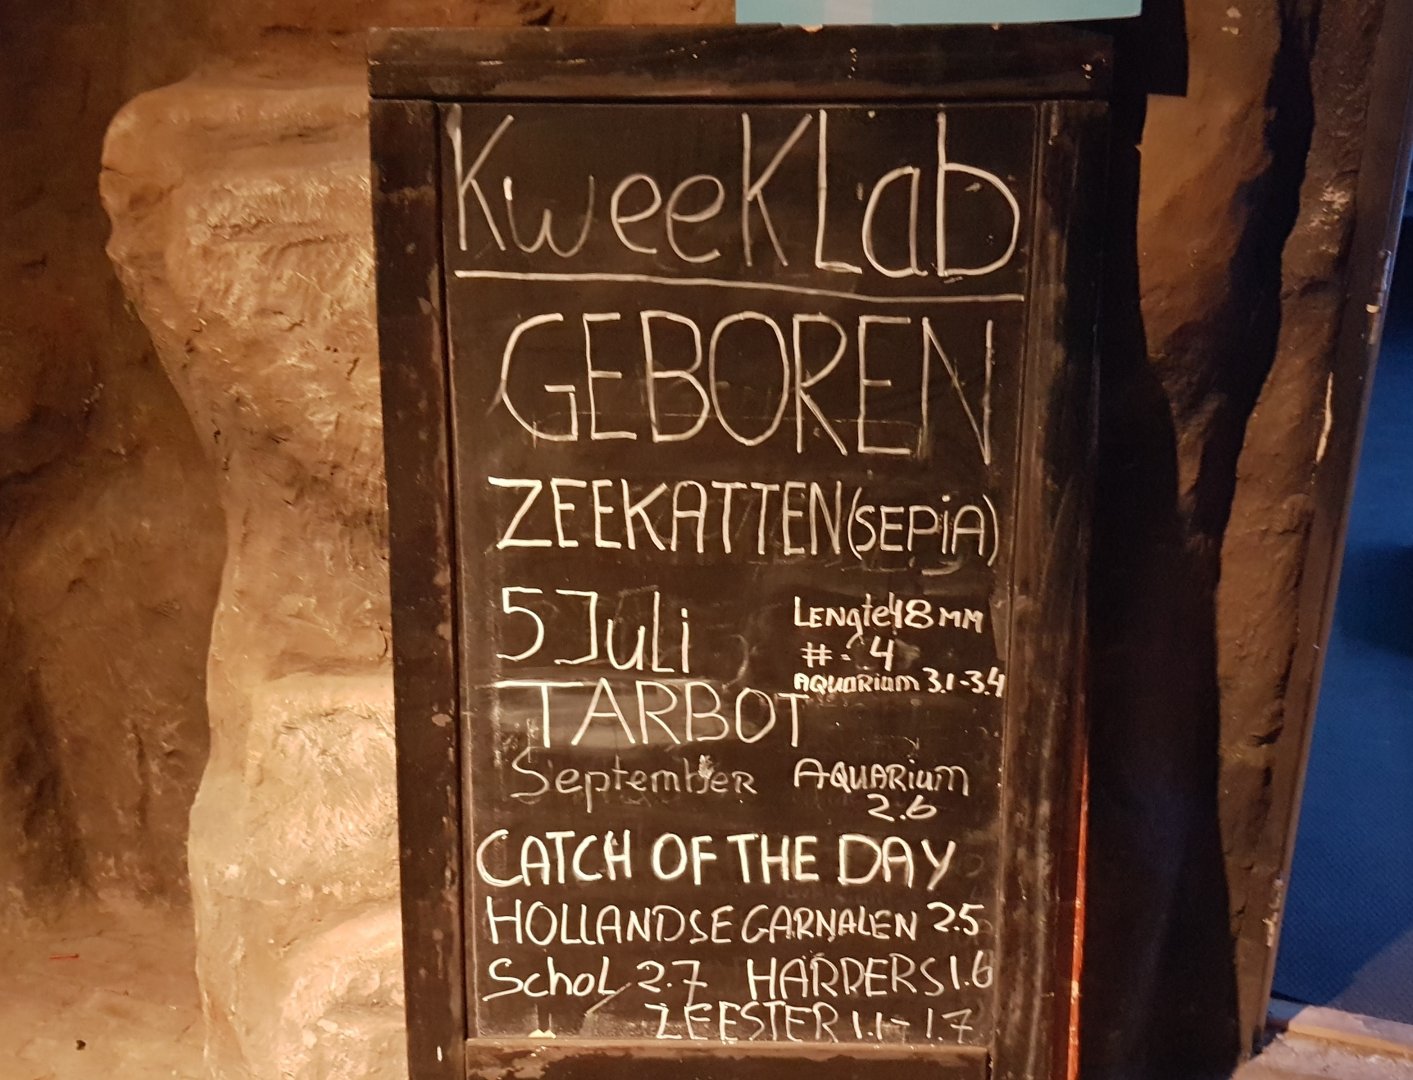 KweeKLab
GEBOREN
ZEEKATTEN (SEPiA)
5 JuLi
LENgte 48 MM
# - 4
AQUARium 3.1-3.4
TARBOT
September
AQUARium
2.6
CATCH OF THE DAY
HOLLANDSE GARNALEN 2.5
SchoL 2.7 HARDERS 1.6
ZEESTER 1.1- 1.7